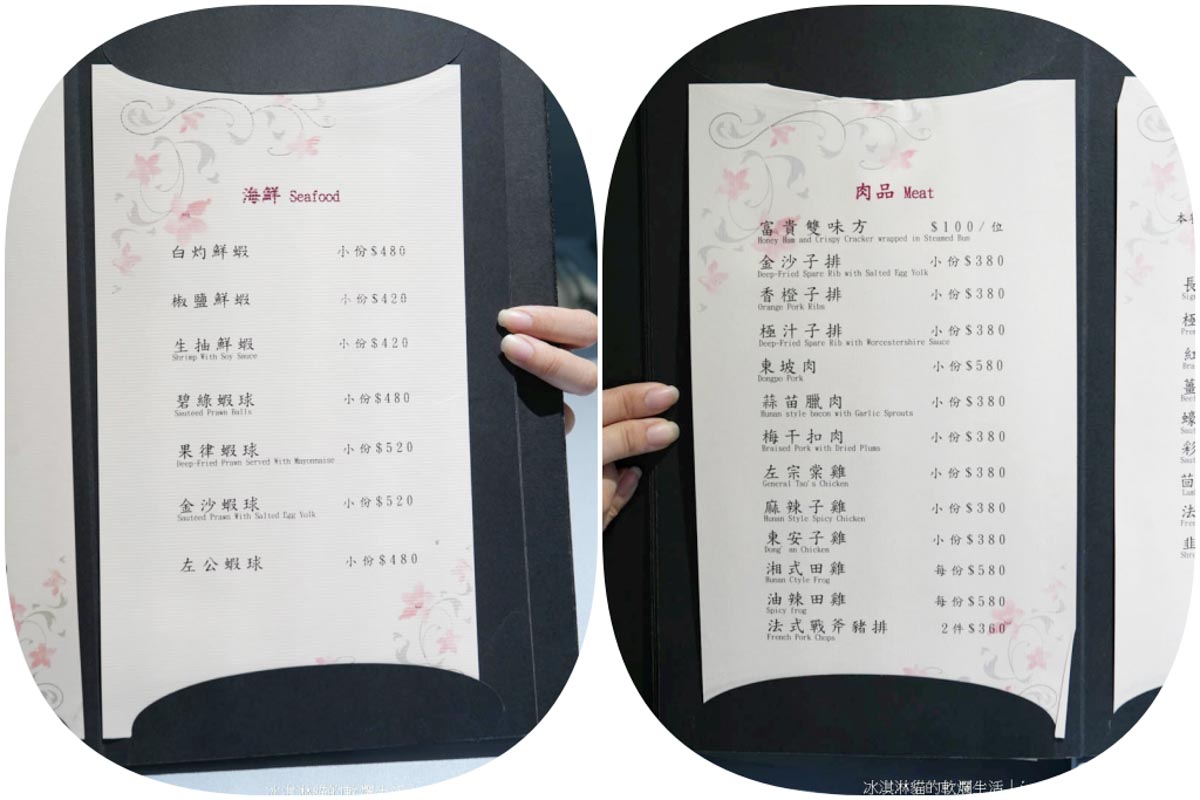 海鮮 Seafood
白灼鮮蝦 小份$480
椒鹽鮮蝦 小份$420
生抽鮮蝦 小份$420
Shrimp With Soy Sauce
碧綠蝦球 小份$480
Sauteed Prawn Balls
果律蝦球 小份$520
Deep-Fried Prawn Served With Mayonnaise
金沙蝦球 小份$520
Sauteed Prawn With Salted Egg Yolk
左公蝦球 小份$480
肉品 Meat
富貴雙味方 $100/位
Honey Ham and Crispy Cracker wrapped in Steamed Bun
金沙子排 小份$380
Deep-Fried Spare Rib with Salted Egg Yolk
香橙子排 小份$380
Orange Pork Ribs
極汁子排 小份$380
Deep-Fried Spare Rib with Worcestershire Sauce
東坡肉 小份$580
Dongpo Pork
蒜苗臘肉 小份$380
Hunan style bacon with Garlic Sprouts
梅干扣肉 小份$380
Braised Pork with Dried Plums
左宗棠雞 小份$380
General Tso's Chicken
麻辣子雞 小份$380
Hunan Style Spicy Chicken
東安子雞 小份$380
Dong'an Chicken
湘式田雞 每份$580
Hunan Ctyle Frog
油辣田雞 每份$580
Spicy frog
法式戰斧豬排 2件$360
French Pork Chops
本
長
極
紅
薑
蠔
彩
茴
法
韭
冰淇淋貓的軟爛生活
冰淇淋貓的軟爛生活